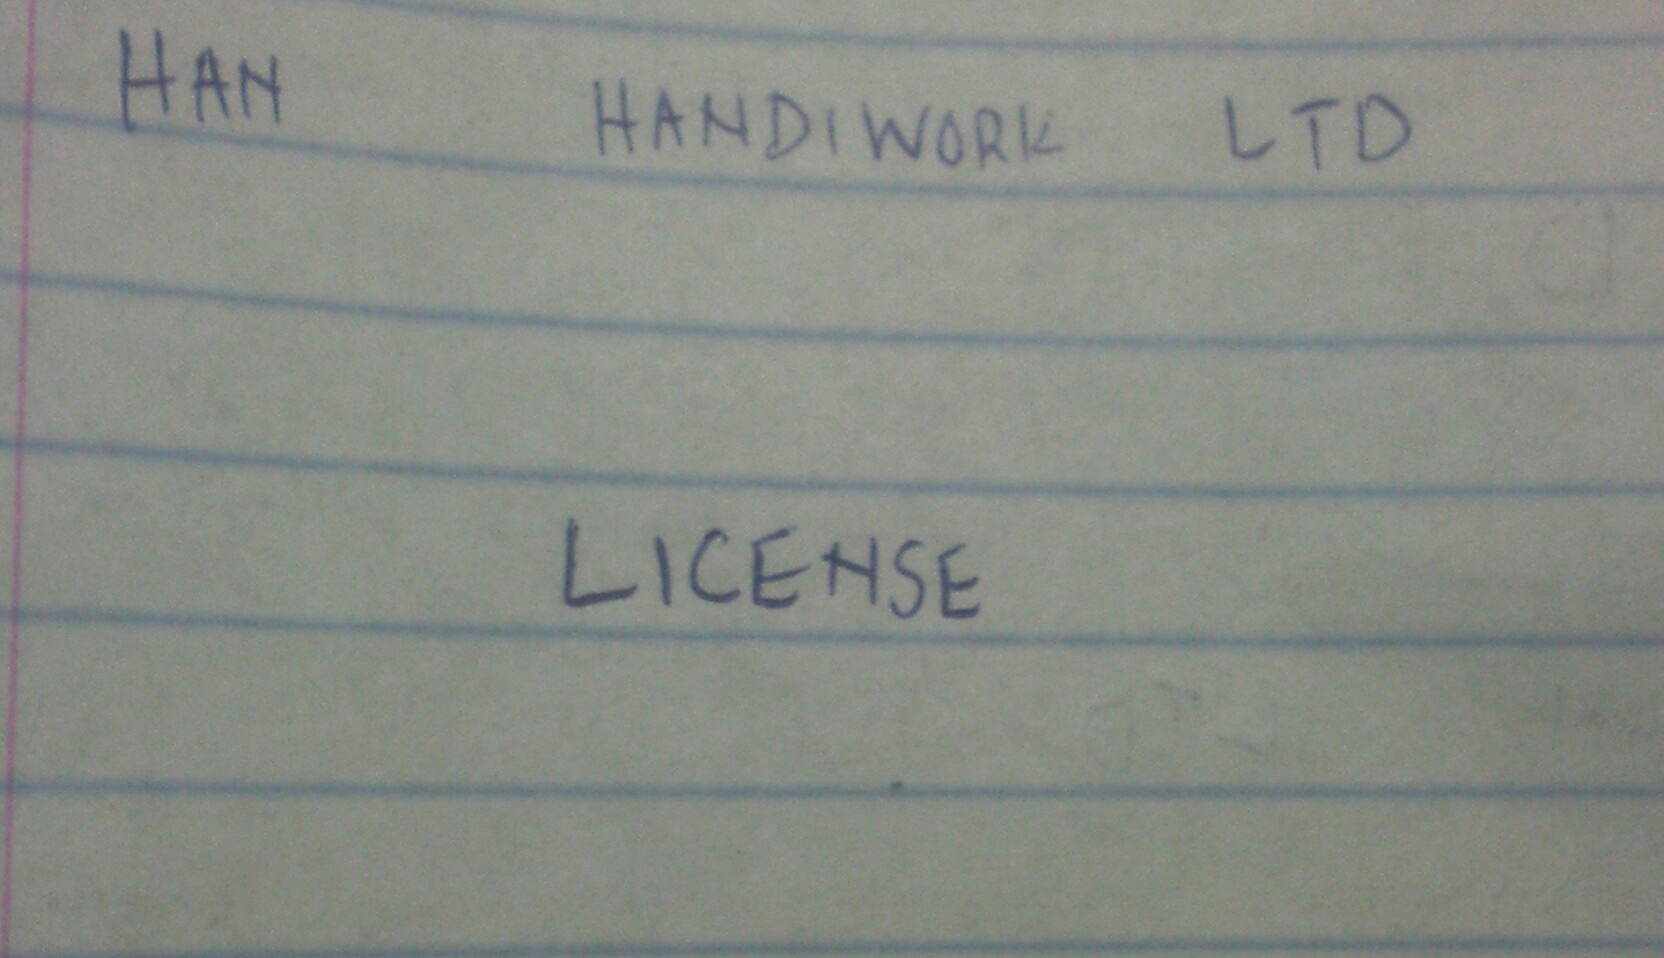 HAN HANDIWORK LTD
LICENSE